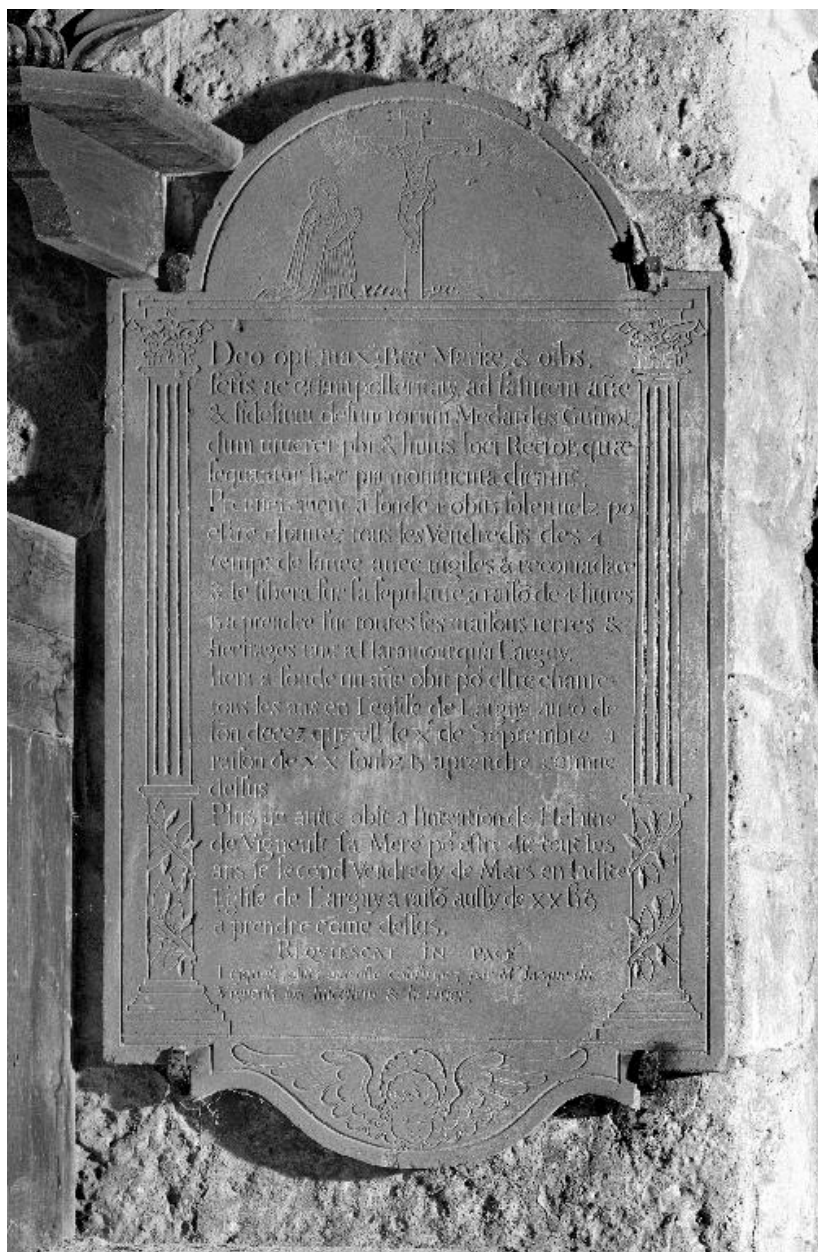 Deo opt. max. Btæ Mariæ, & oibs.
sctis ac etiam posteritati, ad salutem aïæ
& fidelium defunctorum Medardus Guinot
dum viveret pbr & huius loci Rector, quæ
sequuntur hæc pia monumenta dicavit.
Premierement a fondé 4 obits solennelz po
estre chantez tous les Vendredis des 4
temps de lanee avec vigiles & recomadace
& le libera sur sa sepulture, a raisō de 4 livres
a prendre sur toutes ses maisons terres &
heritages tāt a Haramont qua Largny.
Item a fondé un aūe obit po estre chante
tous les ans en Leglise de Largny au iō de
son decez qui est le X de Septembre a
raison de XX soubz a prendre comme
dessus
Plus ūe autre obit a l'intention de
de Vigneult sa Mere po estre dit tous les
ans le second Vendredy de Mars en ladite
Eglise de Largny a raisō aussy de XX
a prendre cōme dessus.
REQVIESCAT IN PACE
par Mr Jacque
& heritier.